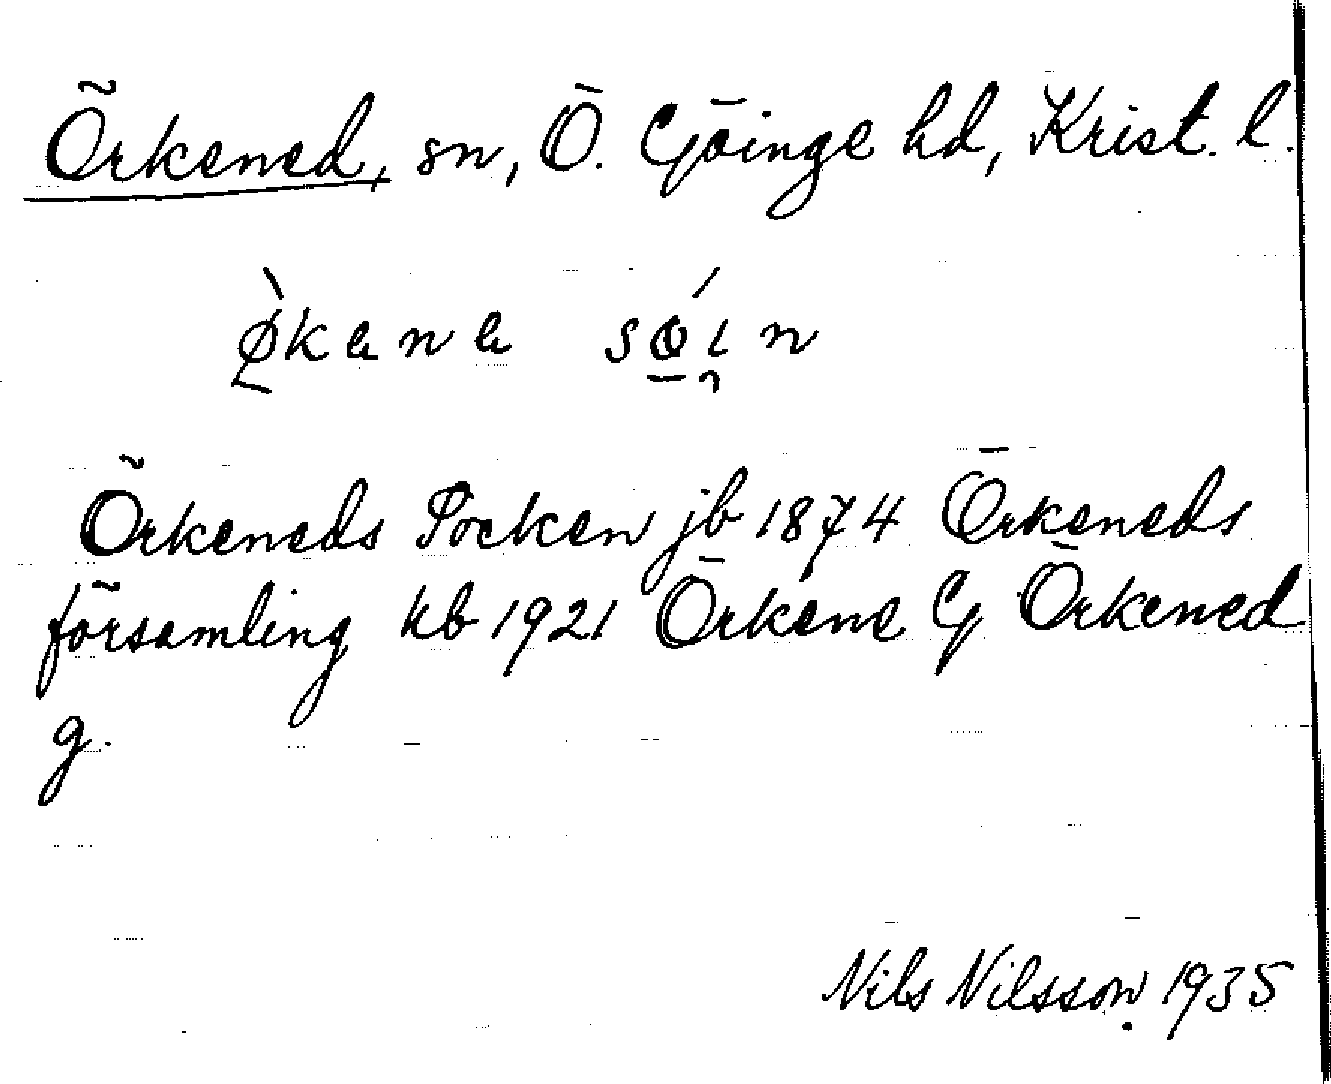 Örkened, sn, Ö. Göinge hd, Krist. l.
Örkeneds Socken jb 1874 Örkeneds
församling kb 1921 Örkene G Örkened
g.
Nils Nilsson 1935